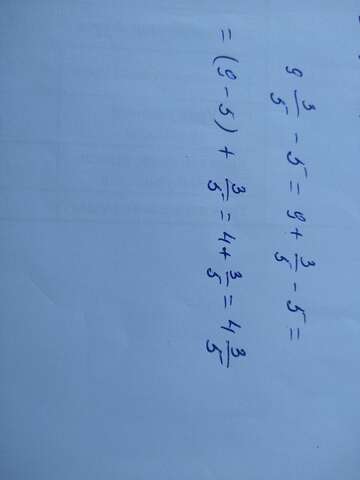 9 3/5 - 5 = 9 + 3/5 - 5 =
= (9 - 5) + 3/5 = 4 + 3/5 = 4 3/5